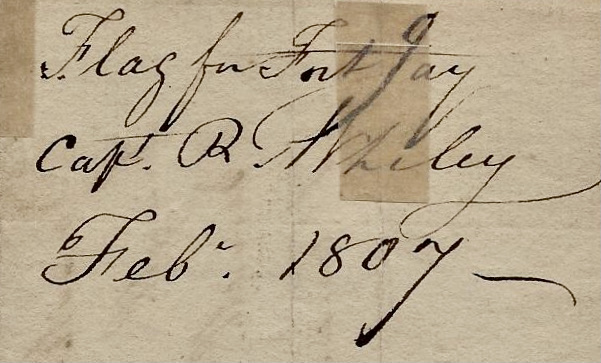 Flag for Fort Jay
Capt. R Whiley
Feby. 1807